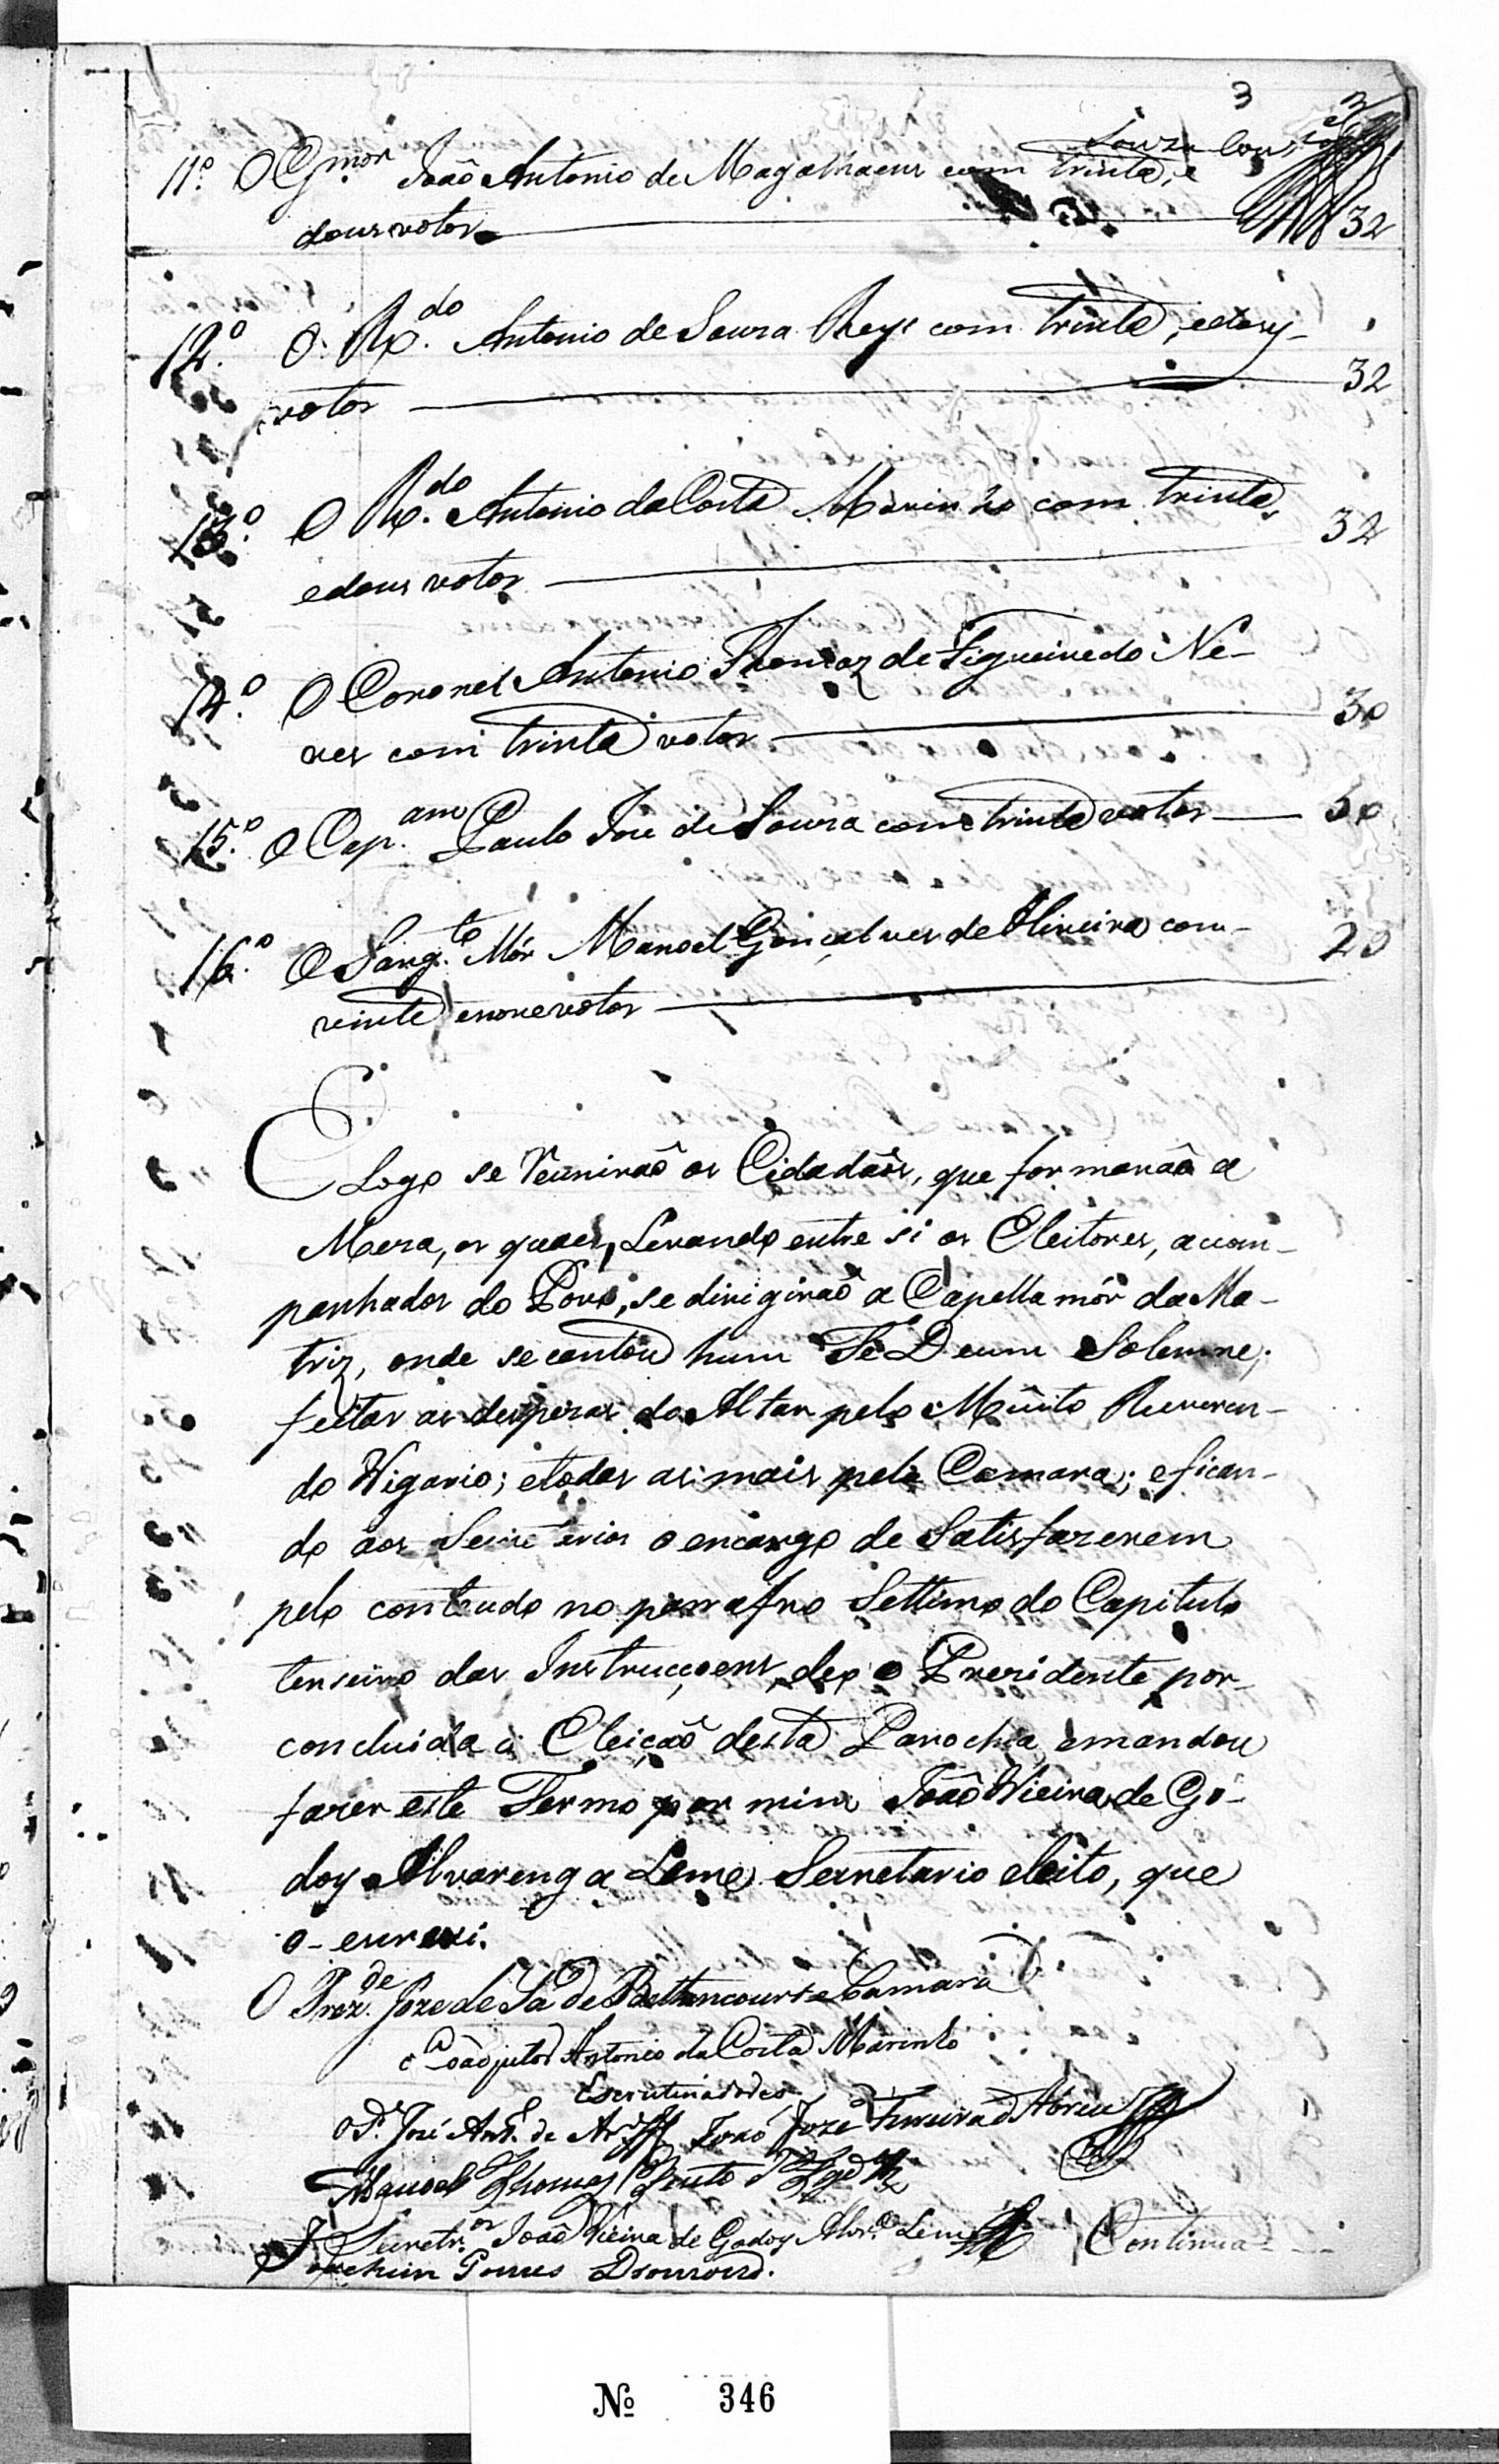 3
11.º O G.mor João Antonio de Magalhaens com trinta, e
dous votos 32
12.º O R.do Antonio de Souza Reys com trinta, e dous
votos 32
13.º O R.do Antonio da Costa Marinho com trinta,
e dous votos 32
14.º O Coronel Antonio Thomaz de Figueiredo Ne-
ves com trinta votos 30
15.º O Cap.am Paulo Joze de Souza com trinta votos 30
16.º O Sarg.to Mór Manoel Gonçalves de Oliveira com
vinte e nove votos 29
E Logo se reunirão os Cidadãos, que formarão a
Meza, os quaes, Levando entre si os Eleitores, acom-
panhados do Povo, se dirigirão a Capella mór da Ma-
triz, onde se cantou hum Te Deum Solemne;
feitas as despezas do Altar pelo Muito Reveren-
do Vigario; e todas as mais pela Camara; e fican-
do aos Secretarios o encargo de Satisfazerem
pelo conteudo no parrafro Settimo do Capitulo
terseiro das Instrucçoens, deo o Prezidente por
concluida a Eleição desta Parochia, e mandou
fazer este Termo por mim João Vieira de Go-
doy Alvarenga Leme Secretario eleito, que
o escrevi.
O Prez.de Joze de Sá de Bettencourt e Camara
o Coadjutor Antonio da Costa Marinho
Escrutinadores
José Ant. de João Joze Ferreira d'Abreu
Manoel Thomaz Pinto de
Secretr.os João Vieira de Godoy Alvr.ª Leme
Joachim Gomes Drumond.
Continua
Nº 346